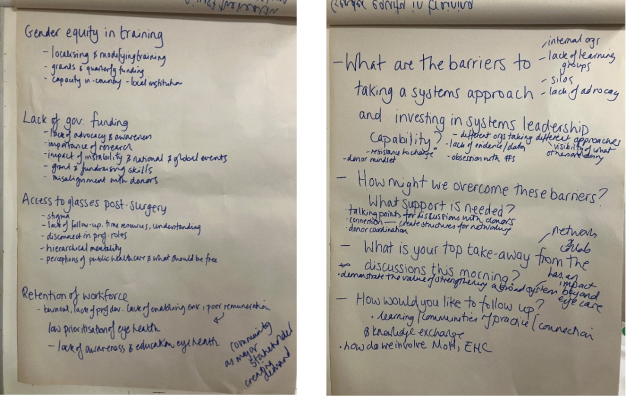 Gender equity in training
- localising & modifying training
- grants & quarterly funding
- capacity in-country - local institution
Lack of gov funding
- lack of advocacy & awareness
- importance of research
- impact of instability & national & global events
- grant & fundraising skills
- misalignment with donors
Access to glasses post-surgery
- stigma
- lack of follow-up, time resources, understanding
- disconnect in prof. roles
- hierarchical mentality
- perceptions of public healthcare & what should be free
Retention of workforce
- burnout, lack of prof dev, lack of enabling env, poor remuneration
low prioritisation of eye health
- lack of awareness & education eye health
community
as major
stakeholder
creating
demand
- What are the barriers to
taking a systems approach
and investing in systems leadership
capability?
- internal orgs
- lack of learning
groups
- silos
- lack of advocacy
- different orgs taking different approaches
- lack of evidence/data
- visibility of what
others are doing
- resistance to change
- obsession with #s
- donor mindset
- How might we overcome these barriers?
What support is needed?
talking points for discussions with donors
connection - create structures for networking
donor coordination
- What is your top take-away from the
discussions this morning?
- demonstrate the value of strengthening a broad system
network
& collab
has an
impact
beyond
eye care
- How would you like to follow up?
• learning/communities of practice/connection
& knowledge exchange
• how do we involve MoH, EHC